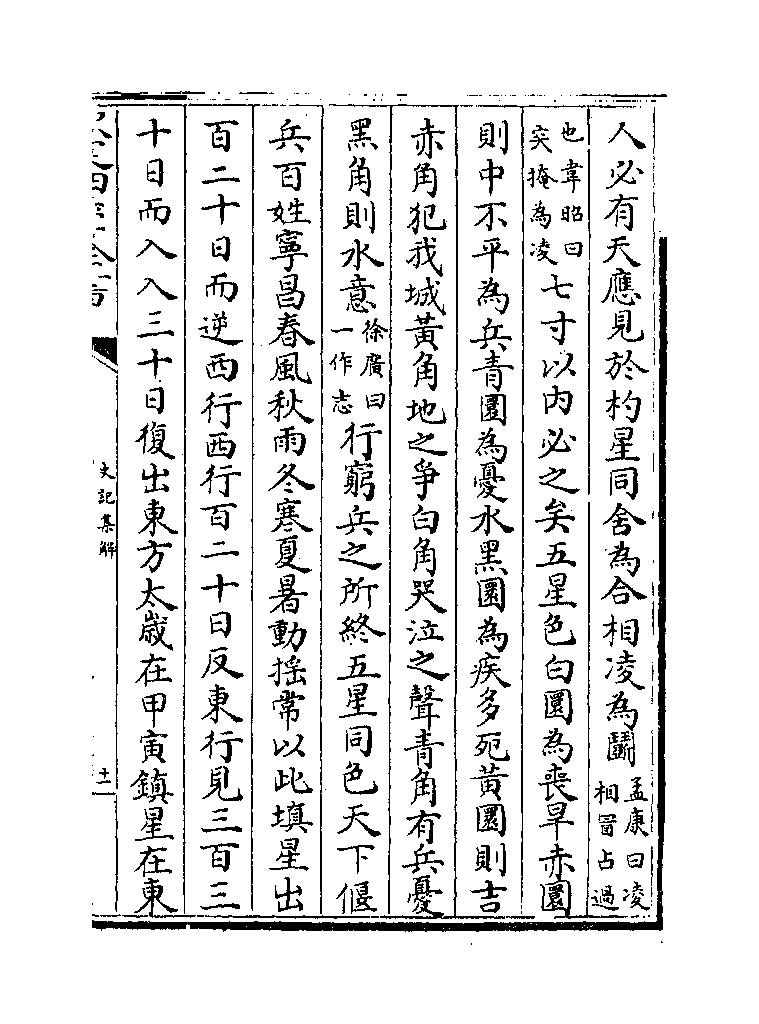 人必有天應見於杓星同舍為合相凌為鬭孟康曰凌相冒占過
也韋昭曰突掩為凌七寸以内必之矣五星色白圜為喪旱赤圜
則中不平為兵青圜為憂水黑圜為疾多死黄圜則吉
赤角犯我城黄角地之爭白角哭泣之聲青角有兵憂
黑角則水意徐廣曰一作志行窮兵之所終五星同色天下偃
兵百姓寧昌春風秋雨冬寒夏暑動揺常以此填星出
百二十日而逆西行西行百二十日反東行見三百三
十日而入入三十日復出東方太歲在甲寅鎮星在東
史記集解
十一